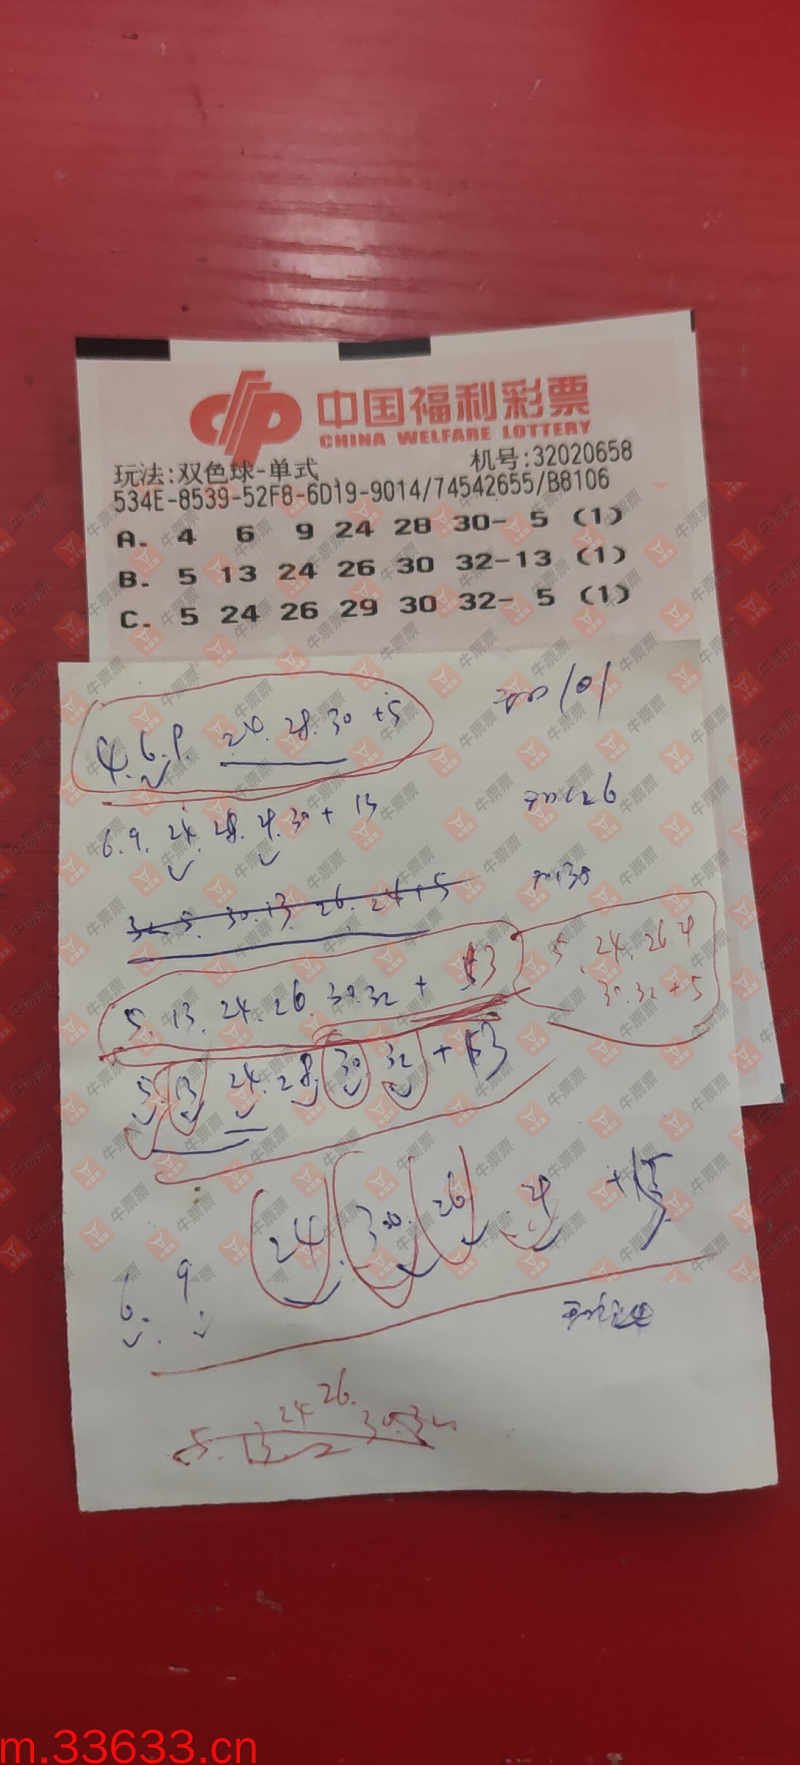 中国福利彩票
CHINA WELFARE LOTTERY
玩法:双色球-单式 机号:32020658
534E-8539-52F8-6D19-9014/74542655/B8106
A. 4 6 9 24 28 30- 5 (1)
B. 5 13 24 26 30 32-13 (1)
C. 5 24 26 29 30 32- 5 (1)
4.6.9. 24.28.30+5
6.9.24.28.29.30+13
32.5.30.13.26.24+5
5.13.24.26.30.32+
5.24.26.29
30.32+5
5.13.24.28.30.32+
6.9.24.30.26.29
5.13.24.26.30.32
牛票票
m.33633.cn